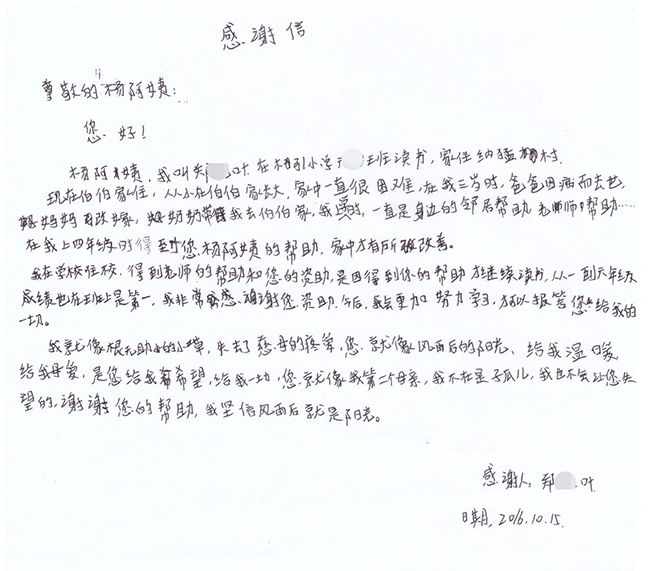 感谢信
尊敬的杨阿姨：
您好！
杨阿姨，我叫郑 叶在 小学 班读书，家住纳猛村.
现在伯伯家住，从小在伯伯家长大，家中一直很困难，在我三岁时，爸爸因病而去世，
妈妈改嫁，奶奶带我去伯伯家，我 时，一直是身边的邻居帮助，老师帮助……
在我上四年级时得到您杨阿姨的帮助，家中才有所改善。
我在学校住校，得到老师的帮助和您的资助，是因得到你的帮助才继续读书，从一到六年级
成绩也在班上是第一，我非常感谢您资助，今后，我会更加努力学习，才以报答您给我的
一切。
我就像根无助的小草，失去了慈母的疼爱，您就像风雨后的阳光、给我温暖，
给我母爱，是您给我希望，给我一切，您就像我第二个母亲，我不在是孤儿，我也不会让您失
望的，谢谢您的帮助，我坚信风雨后就是阳光。
感谢人：郑 叶
日期，2016.10.15.